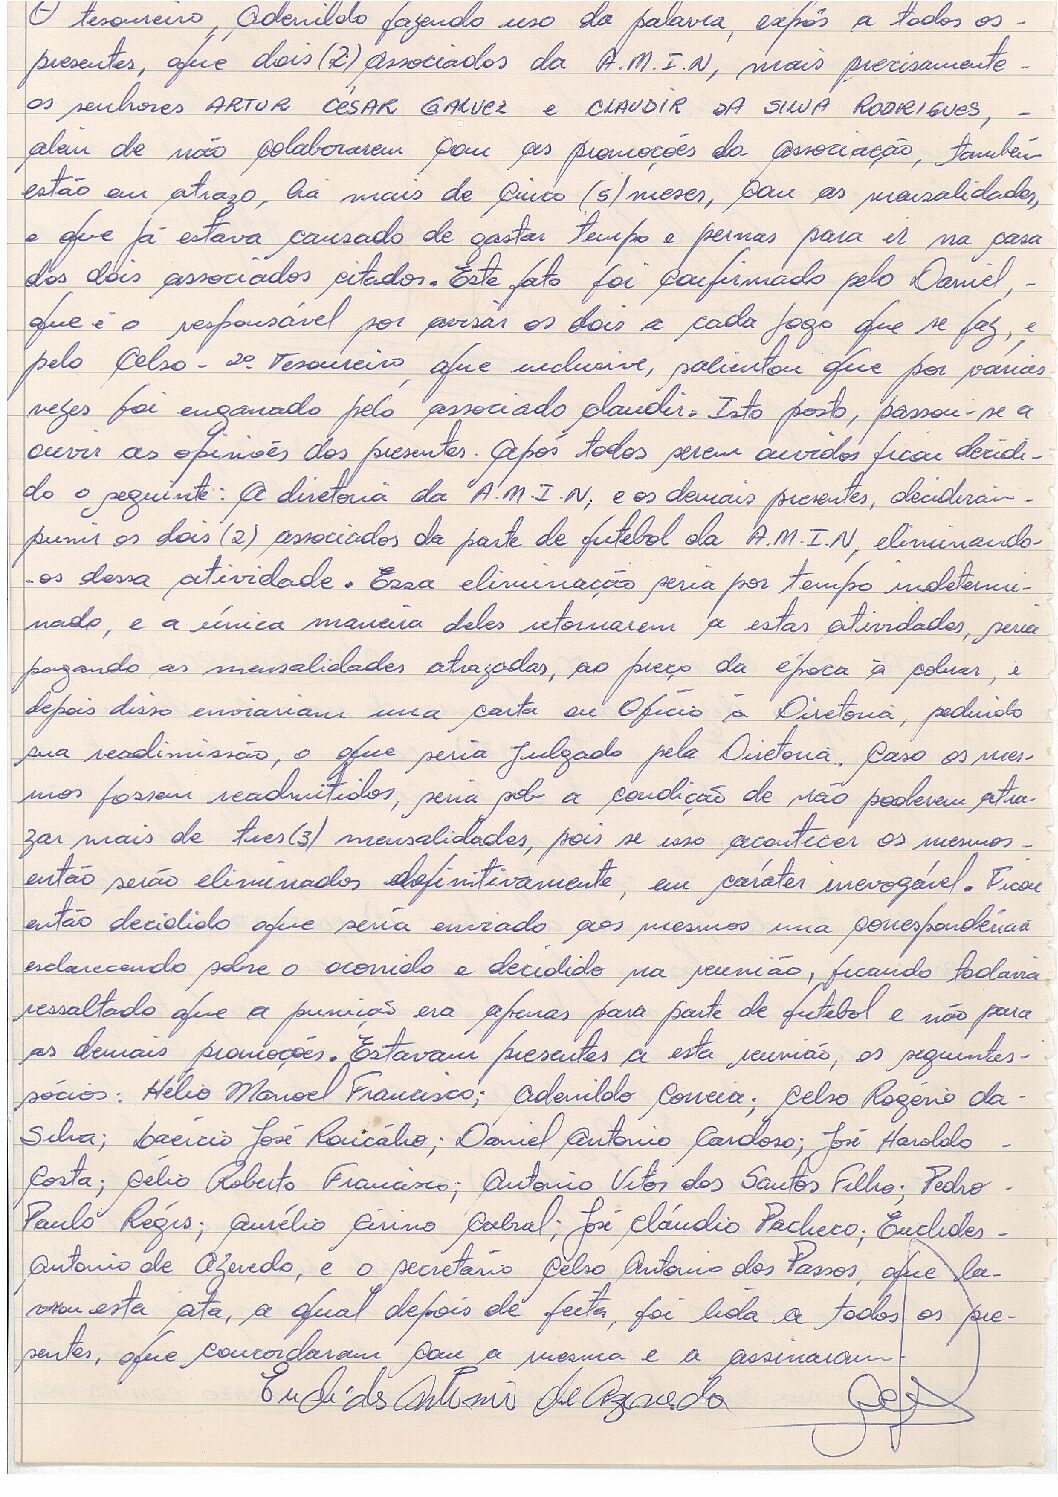 O tesoureiro, Adenildo fazendo uso da palavra, expôs a todos os -
presentes, que dois (2) associados da A.M.I.N, mais precisamente -
os senhores ARTUR CÉSAR GALVEZ e CLAUDIR DA SILVA RODRIGUES, -
além de não colaborarem com as promoções da associação, também
estão em atrazo, há mais de cinco (5) meses, com as mensalidades,
e que já estava cansado de gastar tempo e pernas para ir na casa
dos dois associados citados. Este fato foi confirmado pelo Daniel, -
que é o responsável por avisar os dois a cada jogo que se faz, e
pelo Celso - 2º Tesoureiro, que inclusive, salientou que por várias
vezes foi enganado pelo associado Claudir. Isto posto, passou-se a
ouvir as opiniões dos presentes. Após todos serem ouvidos ficou decidi-
do o seguinte: A diretoria da A.M.I.N, e os demais presentes, decidiram -
punir os dois (2) associados da parte de futebol da A.M.I.N, eliminando-
-os dessa atividade. Essa eliminação seria por tempo indetermi-
nado, e a única maneira deles retornarem a estas atividades, seria
pagando as mensalidades atrazadas, ao preço da época à cobrar, e
depois disso enviariam uma carta ou Ofício à Diretoria, pedindo
sua readimissão, o que seria julgado pela Diretoria. Caso os mes-
mos fossem readmitidos, seria sob a condição de não poderem atra-
zar mais de tres (3) mensalidades, pois se isso acontecer os mesmos -
então serão eliminados definitivamente, em caráter irrevogável. Ficou
então decidido que seria enviado aos mesmos uma correspondência
esclarecendo sobre o ocorrido e decidido na reunião, ficando todavia
ressaltado que a punição era apenas para parte de futebol e não para
as demais promoções. Estavam presentes a esta reunião, os seguintes -
sócios: Hélio Manoel Francisco; Adenildo Correia; Celso Rogério da -
Silva; Laércio José Raicálho; Daniel Antonio Cardoso; José Haroldo -
Costa; Célio Roberto Francisco; Antonio Vitos dos Santos Filho; Pedro -
Paulo Régis; Aurélio Cirino Cabral; José Cláudio Pacheco; Euclides -
Antonio de Azevedo, e o secretário Celso Antonio dos Passos, que la-
vrou esta ata, a qual depois de feita, foi lida a todos os pre-
sentes, que concordaram com a mesma e a assinaram -
Euclides Antonio de Azevedo